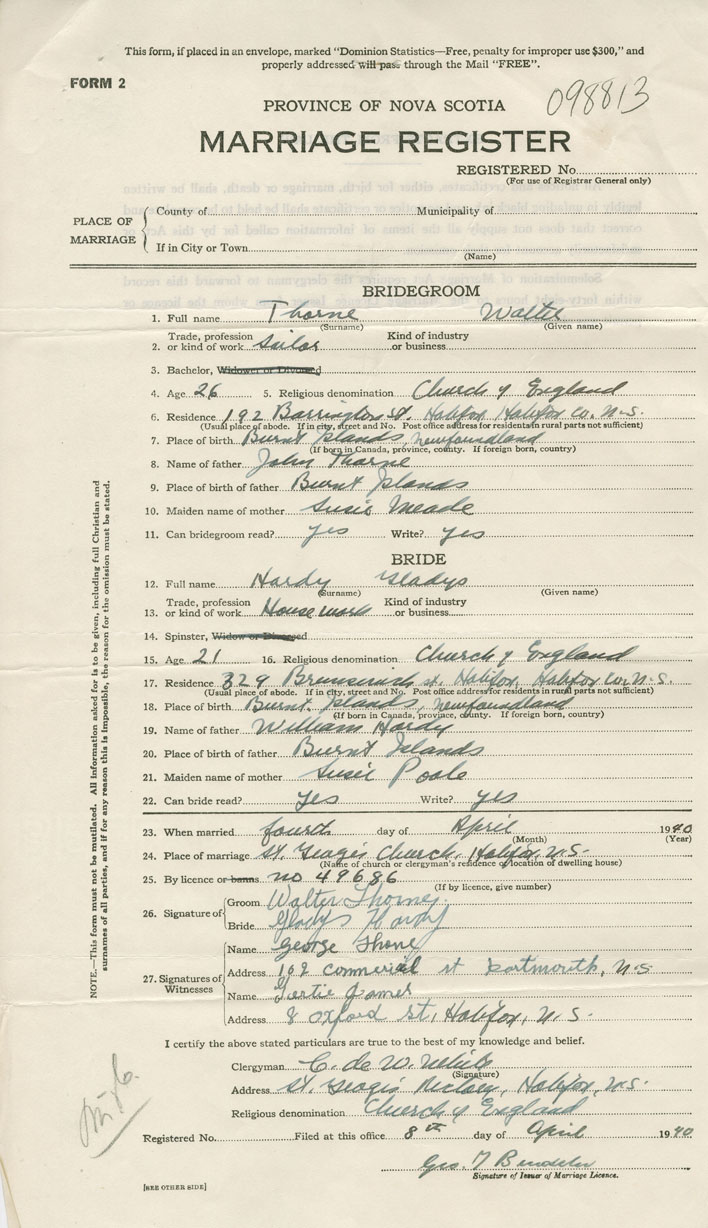 This form, if placed in an envelope, marked "Dominion Statistics—Free, penalty for improper use $300," and
properly addressed will pass through the Mail "FREE".
FORM 2
098813
PROVINCE OF NOVA SCOTIA
MARRIAGE REGISTER
REGISTERED No.
(For use of Registrar General only)
PLACE OF MARRIAGE
County of Municipality of
If in City or Town
(Name)
BRIDEGROOM
1. Full name Thorne Walter
(Surname) (Given name)
2. Trade, profession or kind of work Sailor Kind of industry or business
3. Bachelor, Widower or Divorced
4. Age 26 5. Religious denomination Church of England
6. Residence 192 Barrington st. Halifax Halifax Co. N.S.
(Usual place of abode. If in city, street and No. Post office address for residents in rural parts not sufficient)
7. Place of birth Burnt Islands, Newfoundland
(If born in Canada, province, county. If foreign born, country)
8. Name of father John Thorne
9. Place of birth of father Burnt Islands
10. Maiden name of mother Susie Meade
11. Can bridegroom read? yes Write? yes
BRIDE
12. Full name Hardy Gladys
(Surname) (Given name)
13. Trade, profession or kind of work Housework Kind of industry or business
14. Spinster, Widow or Divorced
15. Age 21 16. Religious denomination Church of England
17. Residence 329 Brunswick st. Halifax, Halifax Co. N.S.
(Usual place of abode. If in city, street and No. Post office address for residents in rural parts not sufficient)
18. Place of birth Burnt Islands, Newfoundland
(If born in Canada, province, county. If foreign born, country)
19. Name of father William Hardy
20. Place of birth of father Burnt Islands
21. Maiden name of mother Susie Poole
22. Can bride read? yes Write? yes
23. When married fourth day of April 1940
(Month) (Year)
24. Place of marriage St. George's Church, Halifax, N.S.
(Name of church or clergyman's residence or location of dwelling house)
25. By licence or banns no 49686
(If by licence, give number)
26. Signature of
Groom Walter Thorne
Bride Gladys Hardy
27. Signatures of Witnesses
Name George Thorne
Address 102 commercial st Dartmouth, N.S.
Name Gertie James
Address 8 oxford st, Halifax, N.S.
I certify the above stated particulars are true to the best of my knowledge and belief.
Clergyman C. de W. White
(Signature)
Address St. George's Rectory, Halifax, N.S.
Religious denomination Church of England
Registered No. Filed at this office 8th day of April 1940
Geo. T
Signature of Issuer of Marriage Licence.
[SEE OTHER SIDE]
NOTE.—This form must not be mutilated. All information asked for is to be given, including full Christian and
surnames of all parties, and if for any reason this is impossible, the reason for the omission must be stated.